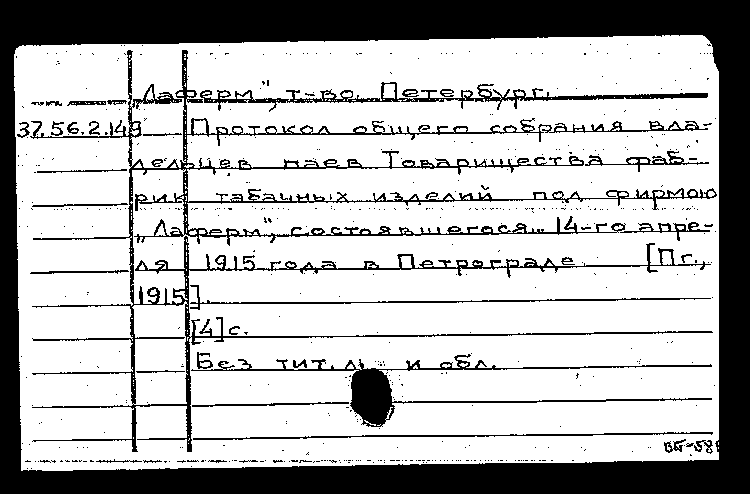 „Лаферм", т-во. Петербург.
37.56.2.149 Протокол общего собрания вла-
дельцев паев Товарищества фаб-
рик табачных изделий под фирмою
„Лаферм", состоявшегося 14-го апре-
ля 1915 года в Петрограде [Пг.,
1915].
[4] с.
Без тит. л. и обл.